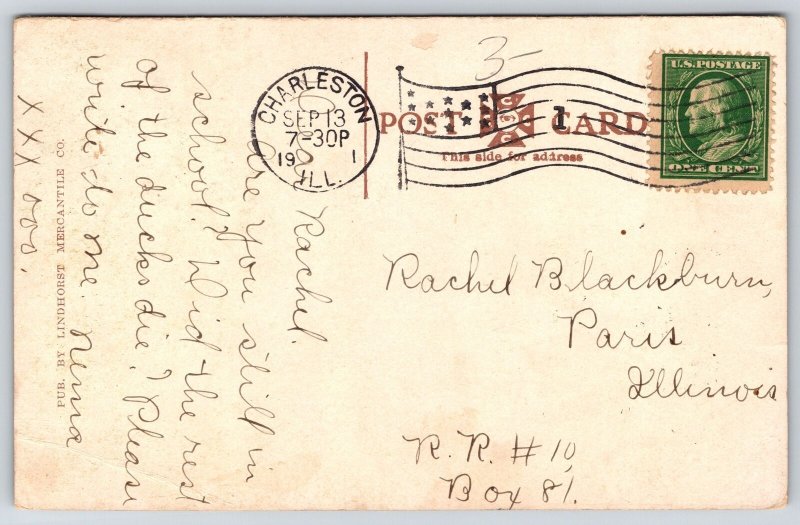 3-
U.S. POSTAGE
ONE CENT
CHARLESTON
SEP 13
7-30P
19 1
ILL.
1
POST CARD
This side for address
Rachel.
are you still in
school? Did the rest
of the ducks die? Please
write to me. Nema
XXX ooo.
PUB. BY LINDHORST MERCANTILE CO.
Rachel Blackburn,
Paris
Illinois
R. R. # 10,
Box 81.